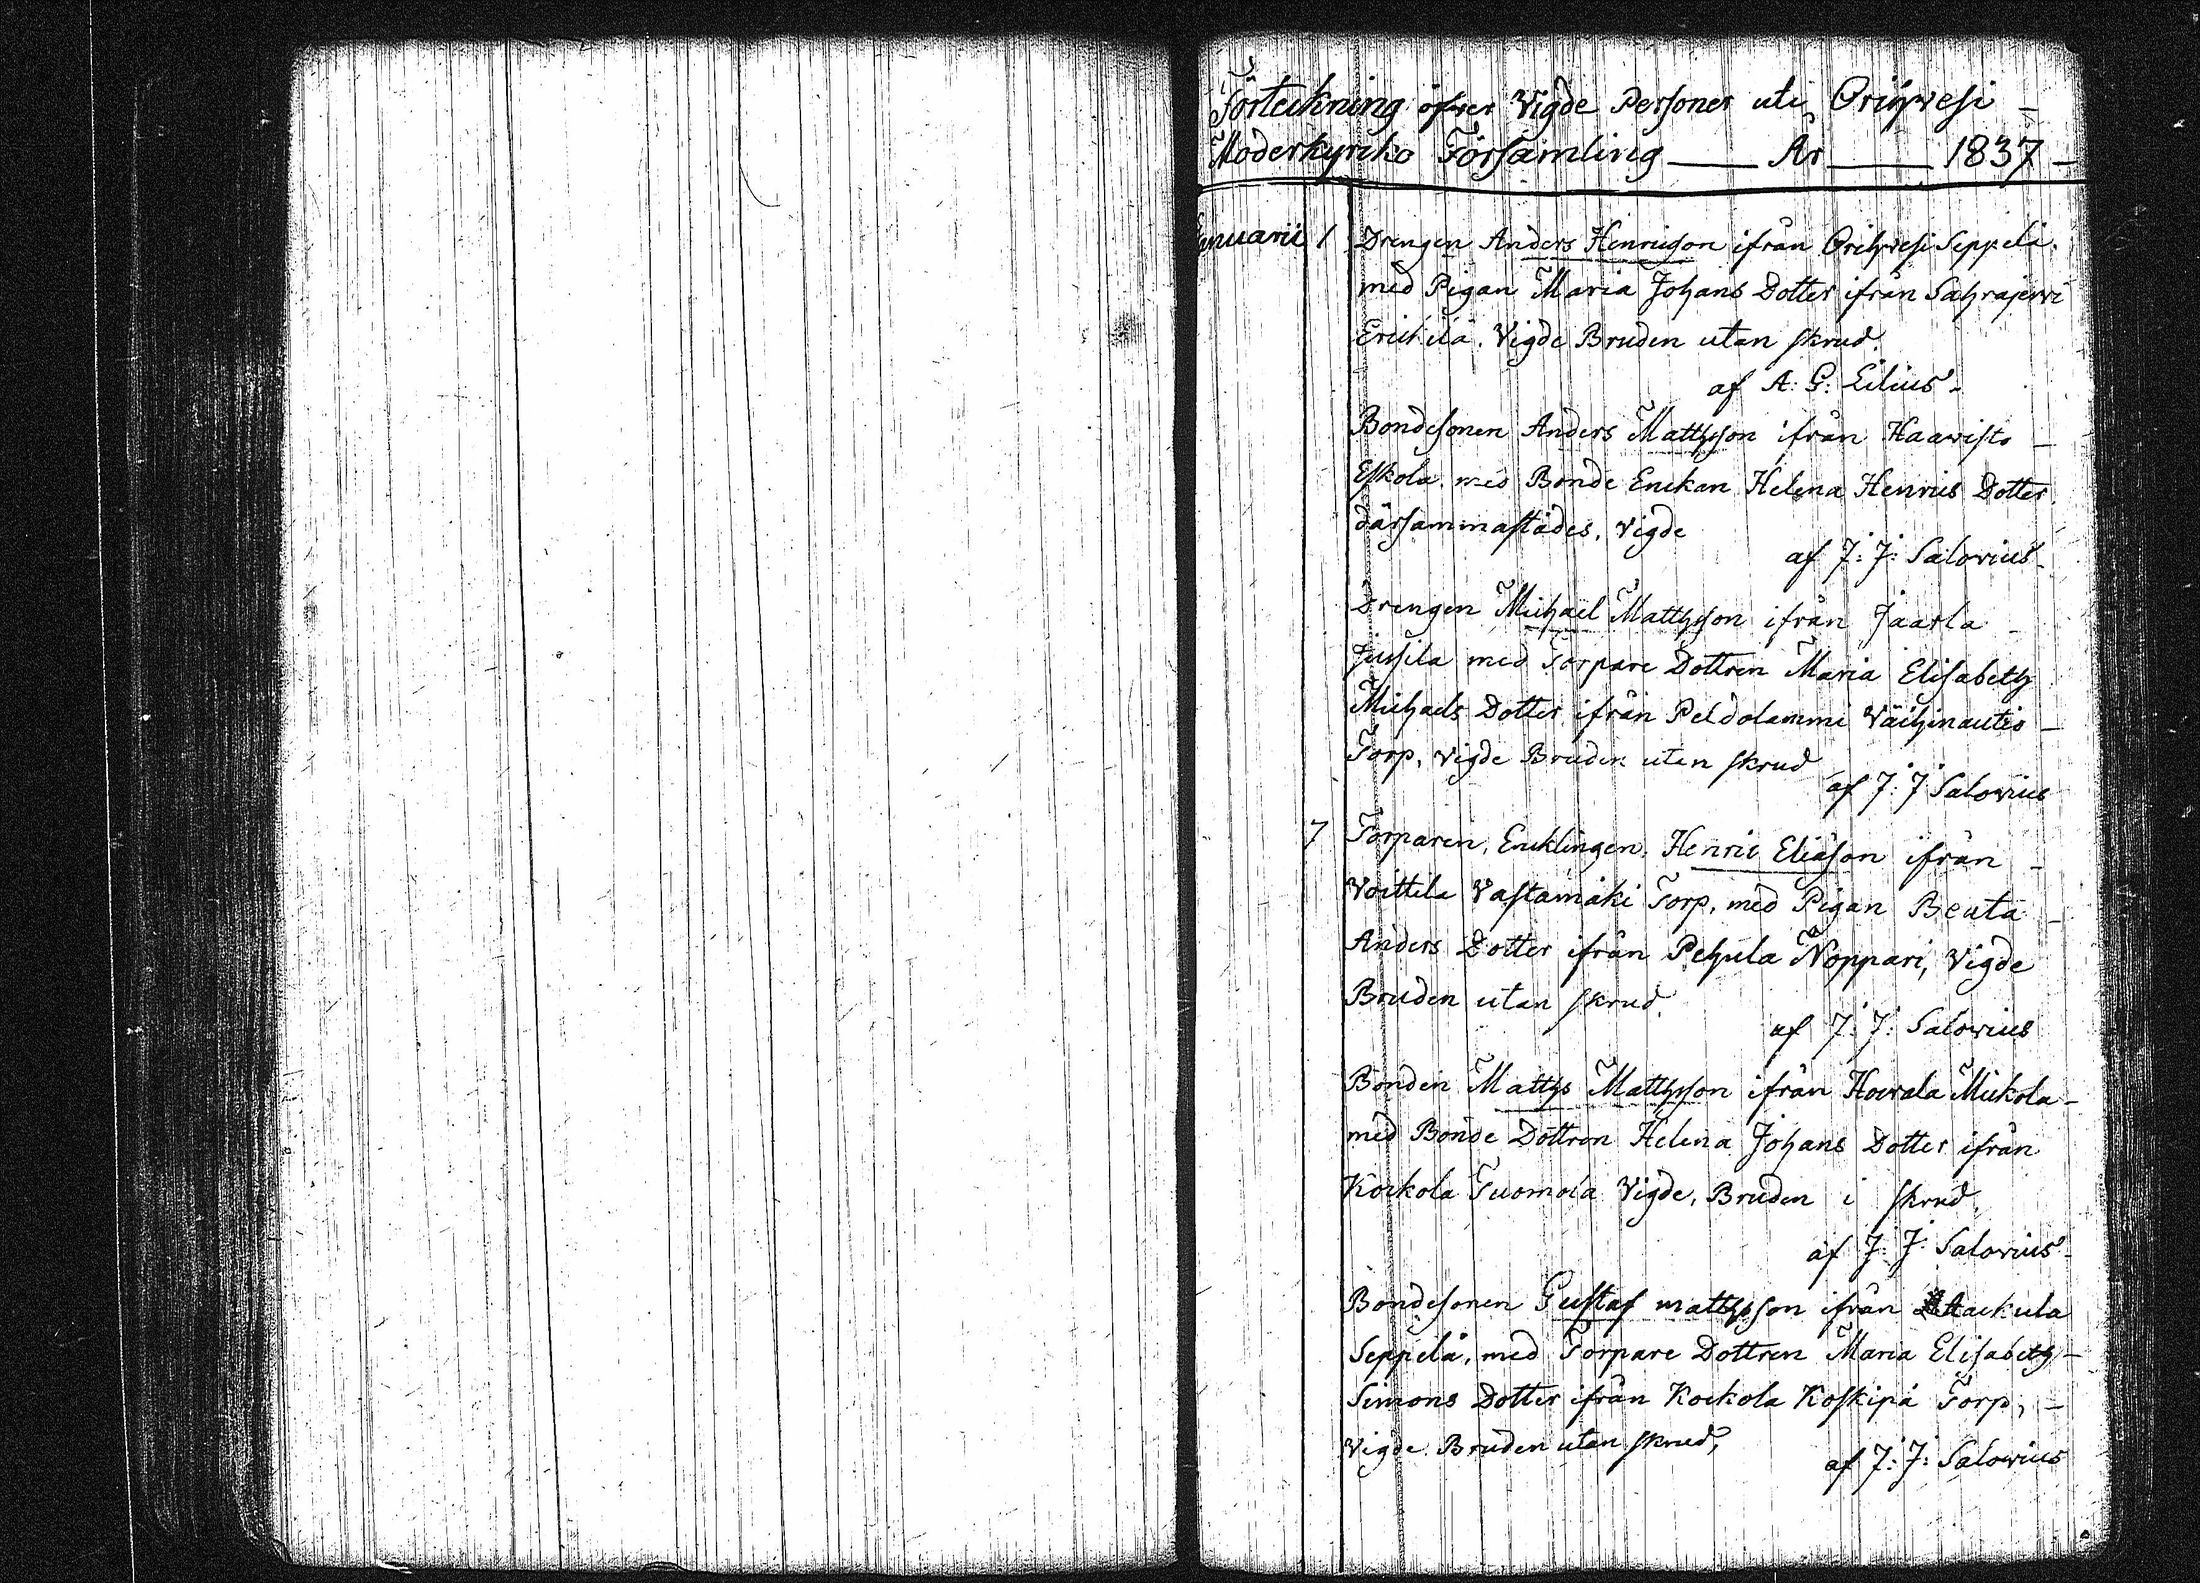 Förteckning öfver Vigde Personer uti Orihvesi –
Moderkyrko Församling — År — 1837 –
Januarii 1 Drengen Anders Henricson ifrån Orihvesi Seppelä.
med Pigan Maria Johans Dotter ifrån Sahrajerwi
Erickilä. Vigde Bruden utan skrud.
af A: G: Lilius –
Bondesonen Anders Mattsson ifrån Haavisto –
Eskola med Bonde Enckan Helena Henrics Dotter
därsammastädes, Vigde
af J: J: Salovius –
Drengen Michael Mattsson ifrån Jaarla –
Jussila med Torpare Dottren Maria Elisabeth
Michaels Dotter ifrån Peldolammi Väihinautio –
Torp, Vigde Bruden utan skrud
af J: J Salovius
7 Torparen, Encklingen, Henric Eliasson ifrån –
Voittila Vastamäki Torp, med Pigan Beata –
Anders Dotter ifrån Pehula Noppari, Vigde
Bruden utan skrud.
af J: J: Salovius
Bonden Matths Mattsson ifrån Hovrala Mickola –
med Bonde Dottren Helena Johans Dotter ifrån
Kockola Tuomola Vigde, Bruden i skrud,
af J: J: Salovius –
Bondesonen Gustaf mattsson ifrån
Seppelä, med Torpare Dottren Maria Elisabeth –
Simons Dotter ifrån Kockola Koskipä Torp, –
Vigde Bruden utan skrud,
af J: J: Salovius